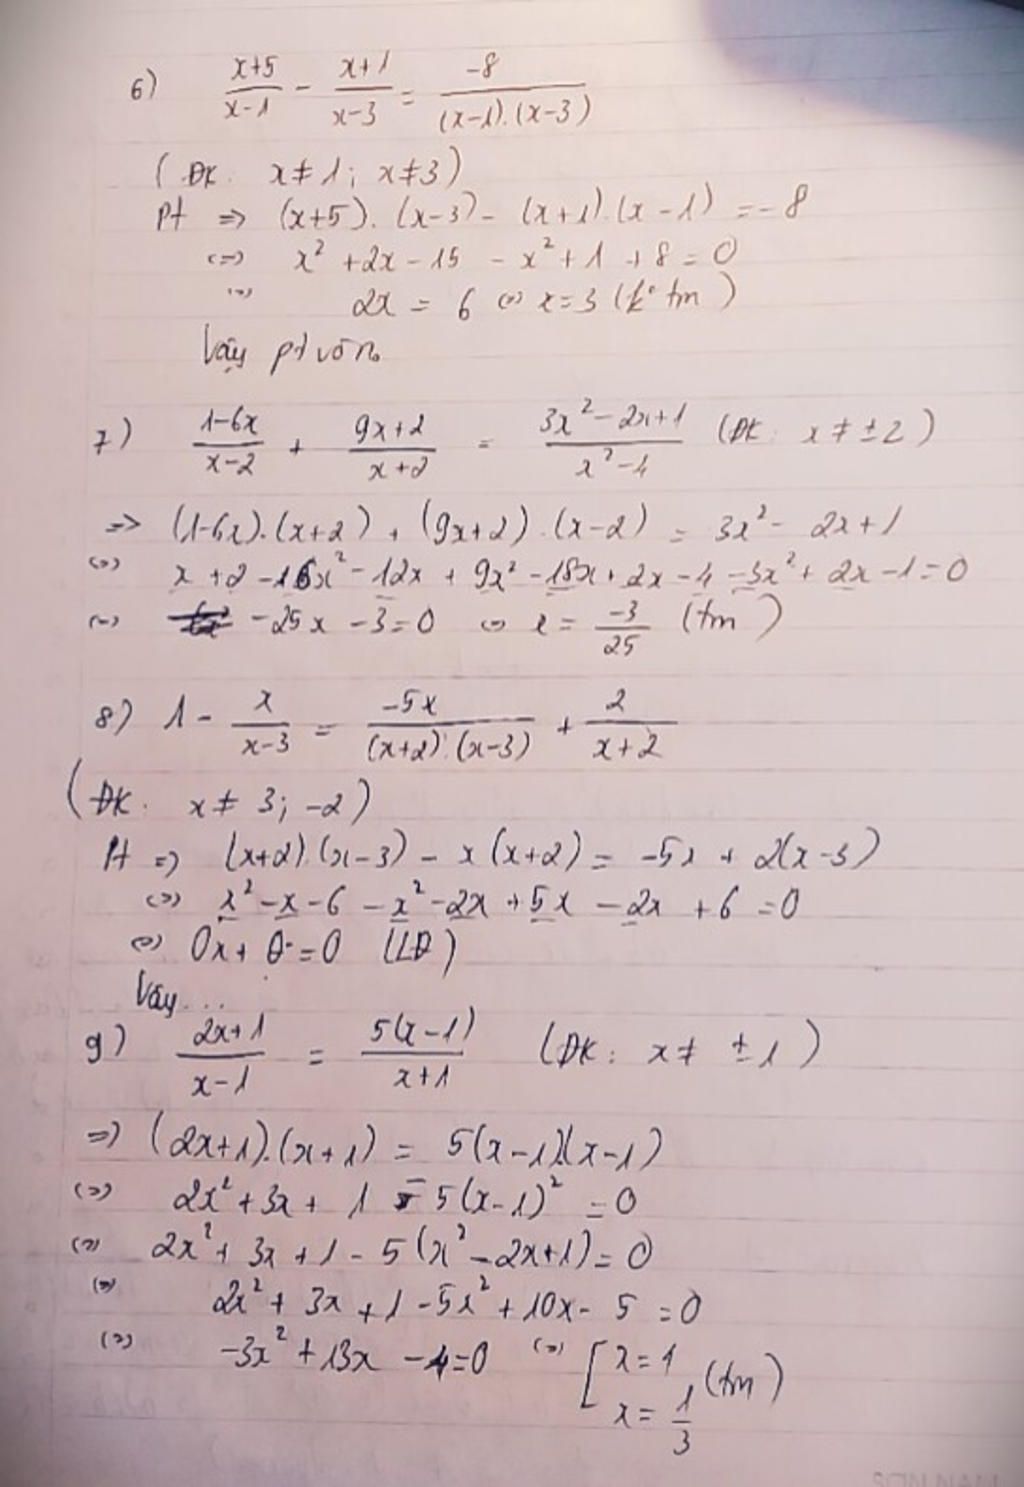 6) (x+5)/(x-1) - (x+1)/(x-3) = -8/((x-1).(x-3))
(ĐK: x ≠ 1; x ≠ 3)
Pt => (x+5).(x-3) - (x+1).(x-1) = -8
<=> x² + 2x - 15 - x² + 1 + 8 = 0
<=> 2x = 6 <=> x = 3 (k° tm)
Vậy pt vô n₀
7) (1-6x)/(x-2) + (9x+2)/(x+2) = (3x²-2x+1)/(x²-4) (ĐK: x ≠ ±2)
=> (1-6x).(x+2) + (9x+2).(x-2) = 3x² - 2x + 1
<=> x + 2 - 6x² - 12x + 9x² - 18x + 2x - 4 - 3x² + 2x - 1 = 0
<=> -25x - 3 = 0 <=> x = -3/25 (tm)
8) 1 - x/(x-3) = -5x/((x+2).(x-3)) + 2/(x+2)
(ĐK: x ≠ 3; -2)
Pt => (x+2).(x-3) - x(x+2) = -5x + 2(x-3)
<=> x² - x - 6 - x² - 2x + 5x - 2x + 6 = 0
<=> 0x + 0 = 0 (LĐ)
Vậy...
9) (2x+1)/(x-1) = 5(x-1)/(x+1) (ĐK: x ≠ ±1)
=> (2x+1).(x+1) = 5(x-1)(x-1)
<=> 2x² + 3x + 1 - 5(x-1)² = 0
<=> 2x² + 3x + 1 - 5(x² - 2x + 1) = 0
<=> 2x² + 3x + 1 - 5x² + 10x - 5 = 0
<=> -3x² + 13x - 4 = 0 <=> [ x = 4
x = 1/3 (tm)